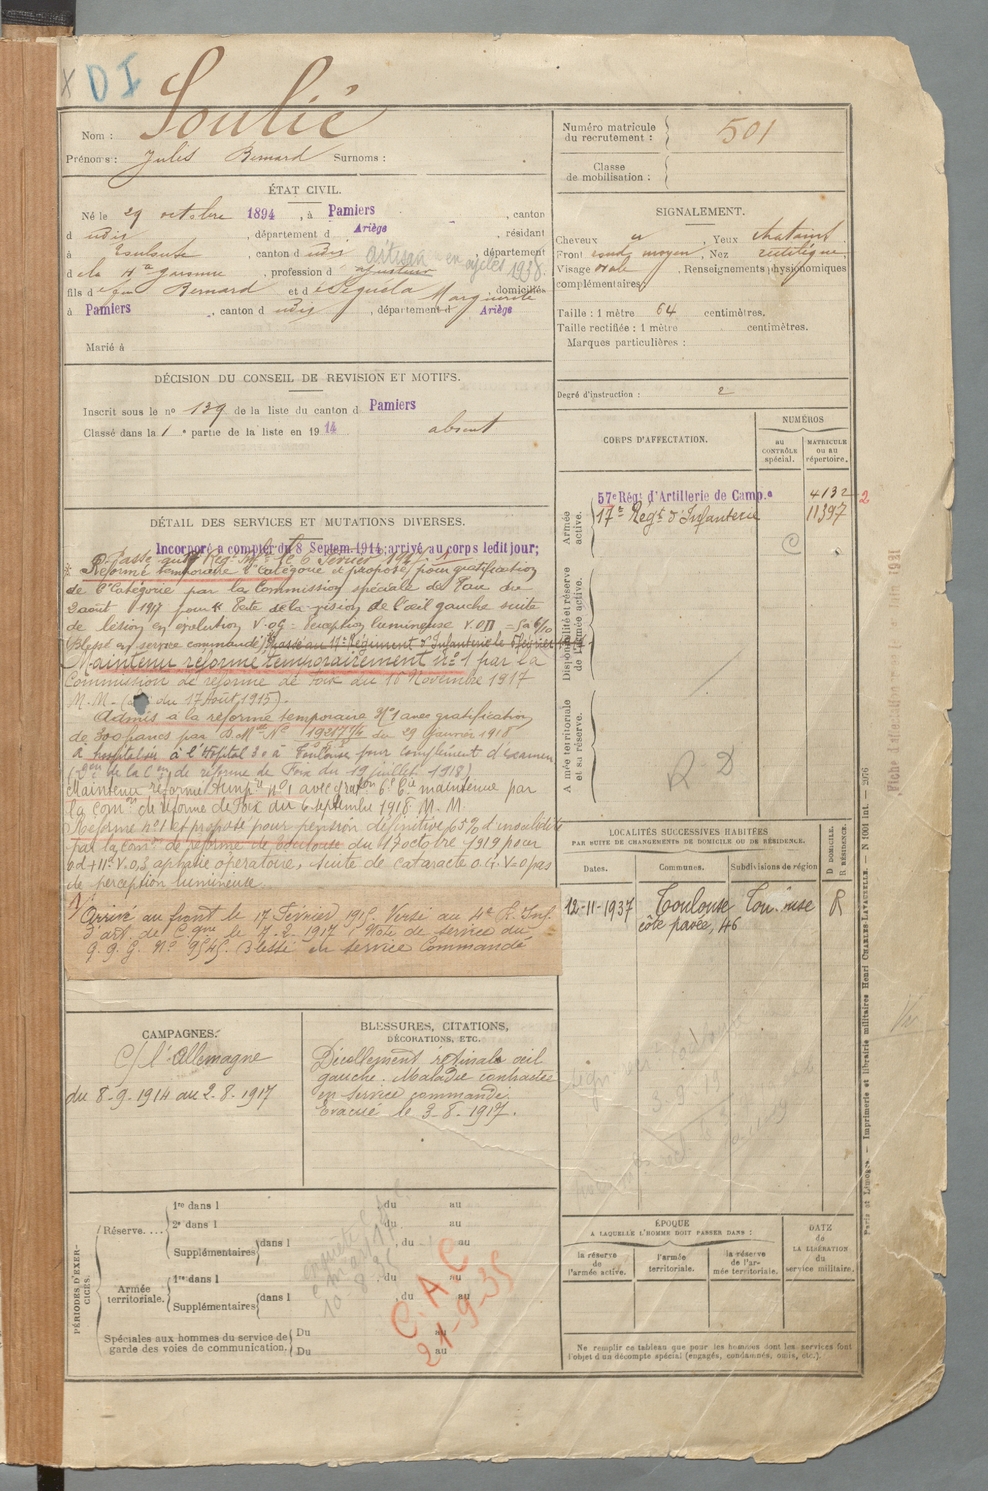 X D I
Nom : Soulié
Prénoms : Jules Bernard Surnoms :
Numéro matricule du recrutement : 501
Classe de mobilisation :
ÉTAT CIVIL.
Né le 29 octobre 1894, à Pamiers, canton
d udis, département d Ariège, résidant
à Toulouse, canton d udis, département
d la Hte Garonne, profession d ajusteur
artisan en cycles 1938.
fils d feu Bernard et d Séguéla Marguerite, domiciliés
à Pamiers, canton d udis, département d Ariège
Marié à
SIGNALEMENT.
Cheveux , Yeux chataint
Front moyen, Nez rectiligne
Visage ovale, Renseignements physionomiques
complémentaires :
Taille : 1 mètre 64 centimètres.
Taille rectifiée : 1 mètre centimètres.
Marques particulières :
Degré d'instruction : 2
DÉCISION DU CONSEIL DE REVISION ET MOTIFS.
Inscrit sous le no 139 de la liste du canton d Pamiers
Classé dans la 1e partie de la liste en 1914 absent
CORPS D'AFFECTATION.
NUMÉROS
au CONTRÔLE spécial.
MATRICULE ou au répertoire.
Armée active.
57e Régt d'Artillerie de Camp.e 4132 2
17e Regt d'Infanterie 11397
C
Disponibilité et réserve de l'armée active.
Armée territoriale et sa réserve.
R D
DÉTAIL DES SERVICES ET MUTATIONS DIVERSES.
Incorporé à compter du 8 Septem. 1914; arrivé au corps ledit jour;
Passé au Reg. Inf. le 6 Février
Réforme temporaire 1e catégorie et proposé pour gratification
de 6e Catégorie par la Commission spéciale de Pau du
2 août 1917 pour Perte de la vision de l'œil gauche suite
de lésion en évolution V.OG = Perception lumineuse V.OD = 5 à 6/10
Blessé en service commandé Passé au 17e Régiment d'Infanterie le 6 février
Maintenu réformé temporairement no 1 par la
Commission de réforme de Foix du 10 Novembre 1917
M.M. ( du 17 Août 1915).
Admis à la réforme temporaire No 1 avec gratification
de 300 francs par D. Mlle No du 29 Janvier 1918
à hospitaliser à l'Hôpital 30 à Toulouse pour complément d'examen
( de la Con de réforme de Foix du 19 juillet 1918)
Maintenu réformé temp.re no 1 avec graton 6e Cie maintenue par
la comon de réforme de Foix du 6 septembre 1918 M. M.
Réformé no 1 et proposé pour pension définitive 65% d'invalidité
par la comon de réforme de Toulouse du 17 octobre 1919 pour
aphakie opératoire, suite de cataracte O.G. V = 0 pas
de perception lumineuse.
1) Arrivé au front le 17 Février 1915. Versé au 4e R. Inf.
le 7-2-1917 (Note de service du
G.Q.G. No 9545. Blessé en service commandé
LOCALITÉS SUCCESSIVES HABITÉES
PAR SUITE DE CHANGEMENTS DE DOMICILE OU DE RÉSIDENCE.
Dates.
Communes.
Subdivisions de région
D DOMICILE.
R RÉSIDENCE.
12-11-1937 Toulouse Toulouse R
côte pavée, 46
CAMPAGNES.
C/ l'Allemagne
du 8-9-1914 au 2-8-1917
BLESSURES, CITATIONS,
DÉCORATIONS, ETC.
Décollement rétinale œil
gauche. Maladie contractée
en service commandé.
Evacué le 3-8-1917.
PÉRIODES D'EXERCICES.
Réserve....
1re dans l du au
2e dans l du au
Supplémentaires dans l , du au
Armée territoriale.
1re dans l du au
Supplémentaires dans l , du au
Spéciales aux hommes du service de
garde des voies de communication.
Du au
Du au
C.A.C
21-9-35
ÉPOQUE
A LAQUELLE L'HOMME DOIT PASSER DANS :
la réserve de l'armée active.
l'armée territoriale.
la réserve de l'armée territoriale.
DATE de LA LIBÉRATION du service militaire.
Ne remplir ce tableau que pour les hommes dont les services font
l'objet d'un décompte spécial (engagés, condamnés, omis, etc.).
Paris et Limoges. — Imprimerie et librairie militaires Henri CHARLES-LAVAUZELLE. — N 1001 int. — 2076